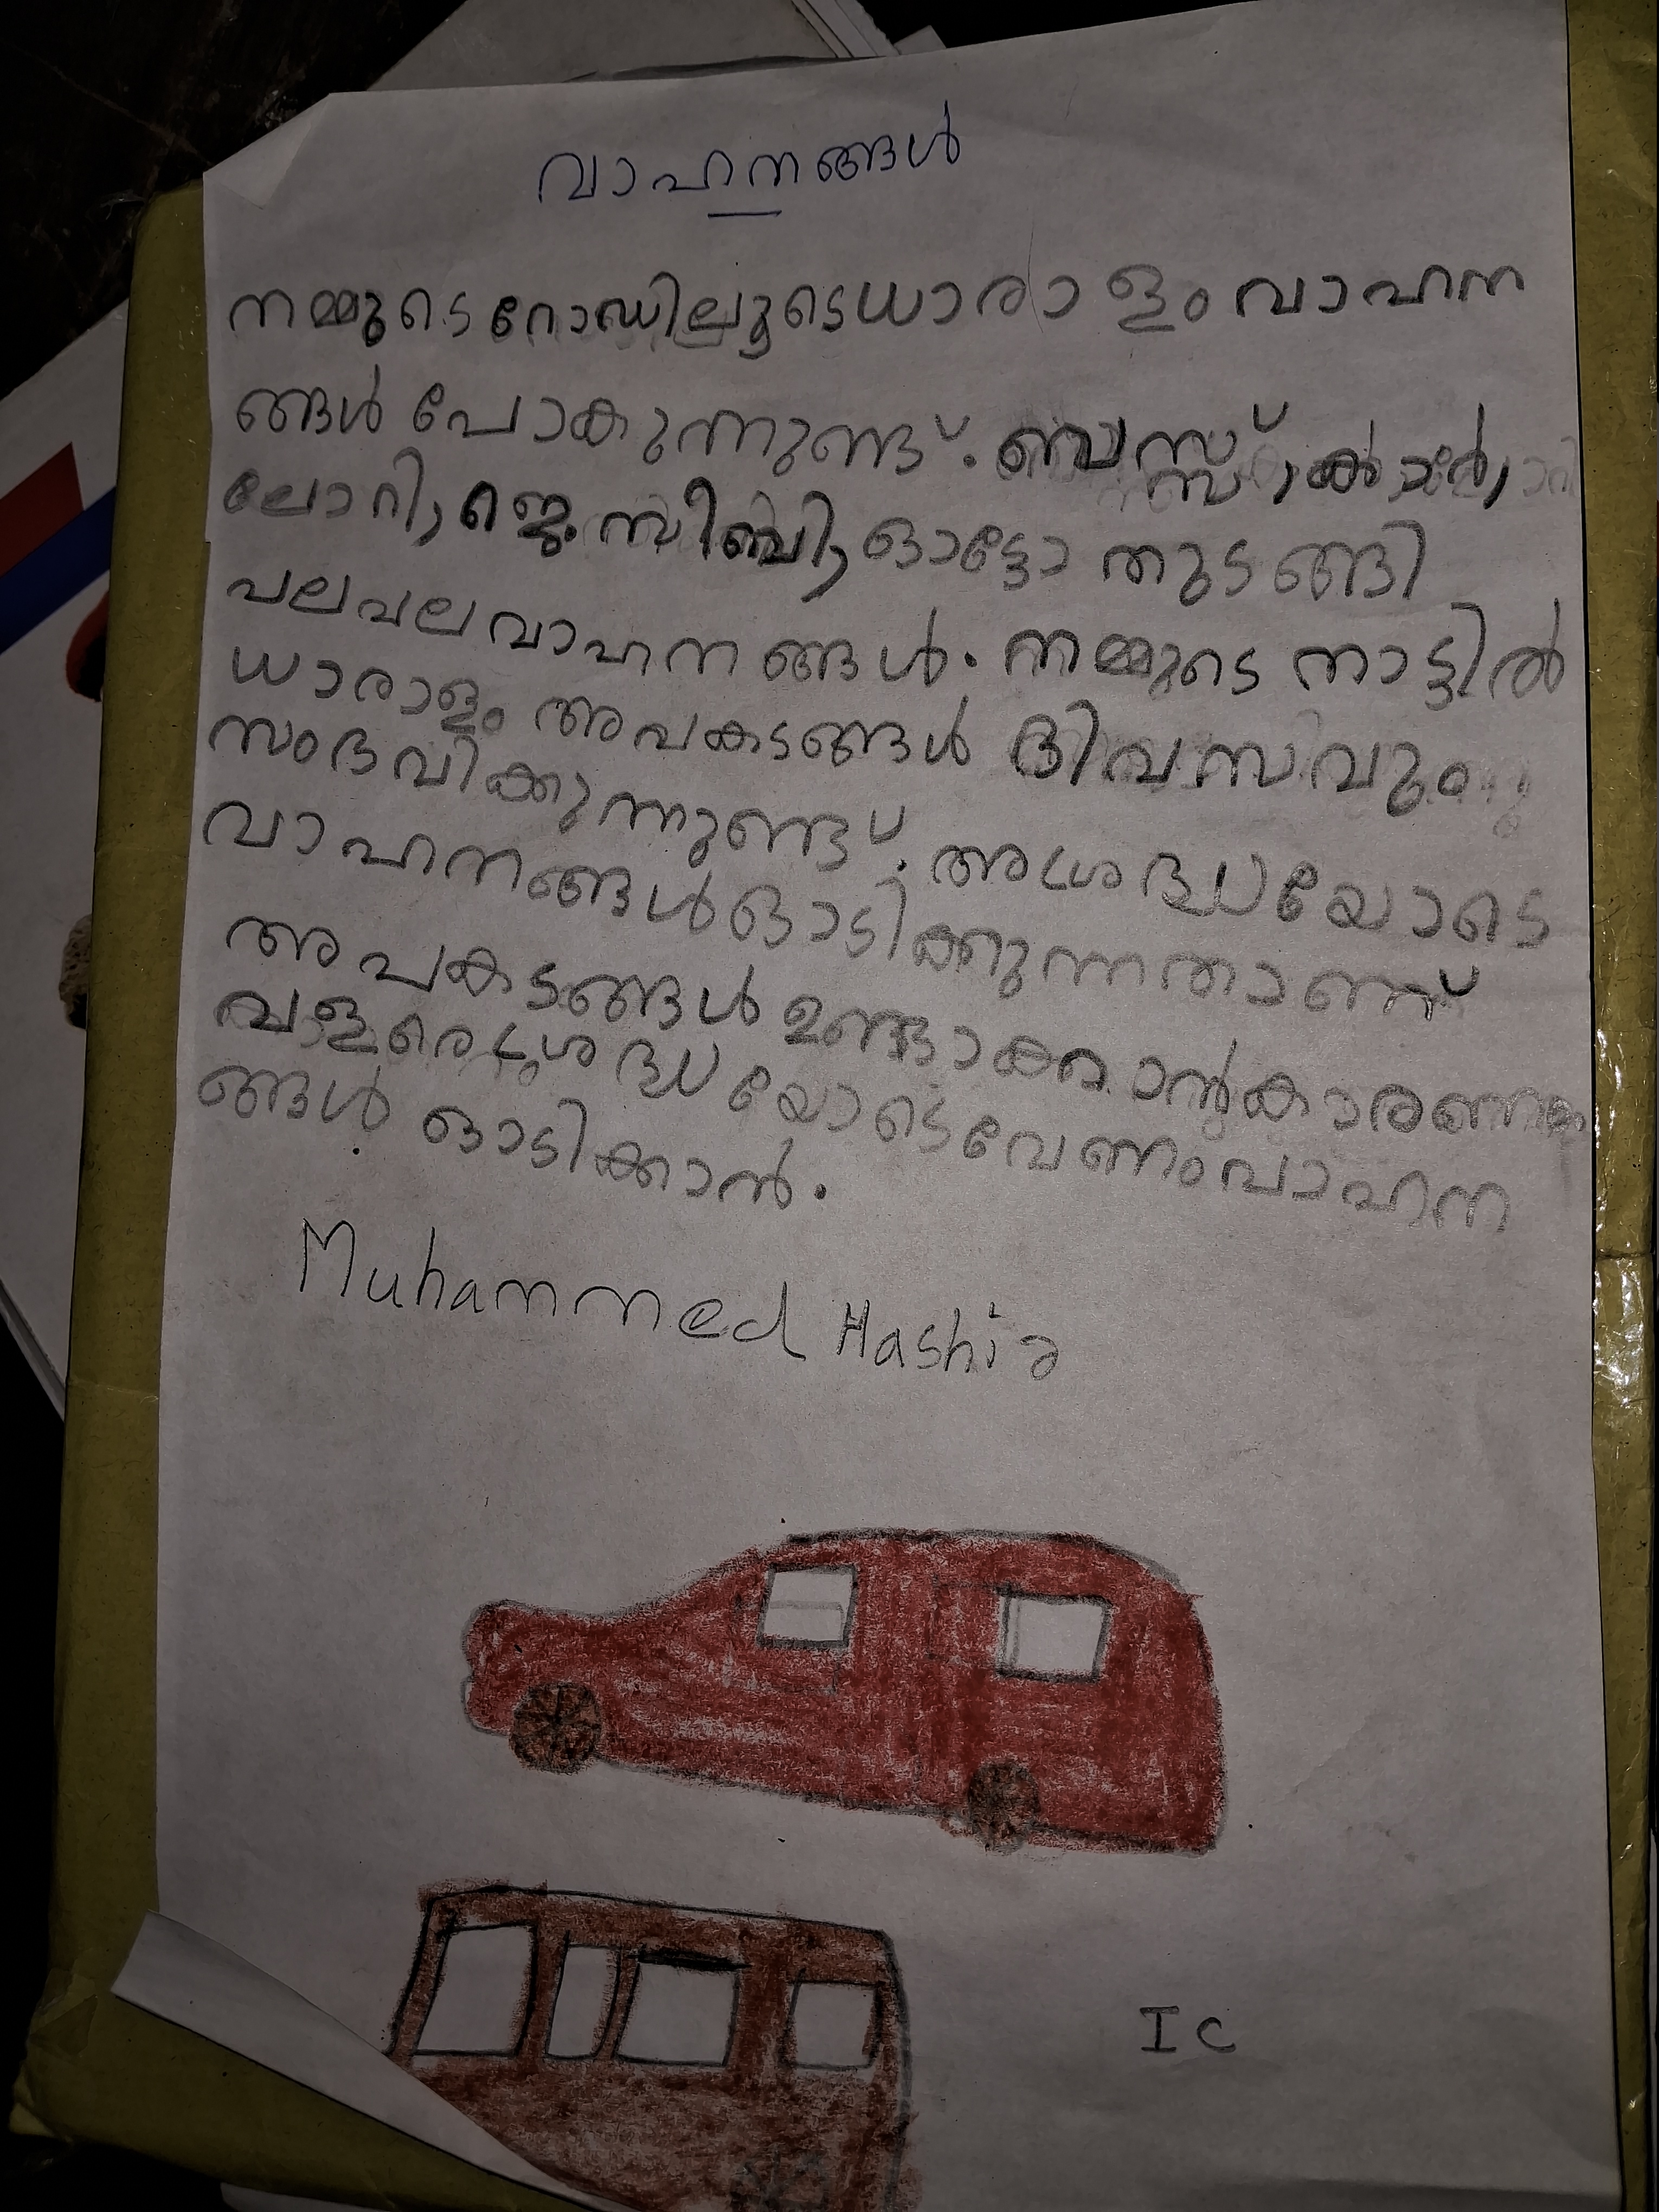 വാഹനങ്ങൾ
നമ്മുടെ റോഡിലൂടെ ധാരാളം വാഹന
ങ്ങൾ പോകുന്നുണ്ട്. ബസ്സ്, കാർ,
ലോറി, ജെ.സീബി, ഓട്ടോ തുടങ്ങി
പലപല വാഹനങ്ങൾ. നമ്മുടെ നാട്ടിൽ
ധാരാളം അപകടങ്ങൾ ദിവസവും
സംഭവിക്കുന്നുണ്ട്. അശ്രദ്ധയോടെ
വാഹനങ്ങൾ ഓടിക്കുന്നതാണ്
അപകടങ്ങൾ ഉണ്ടാകാൻ കാരണം
വളരെ ശ്രദ്ധയോടെ വേണം വാഹന
ങ്ങൾ ഓടിക്കാൻ.
Muhammed Hashir
I C